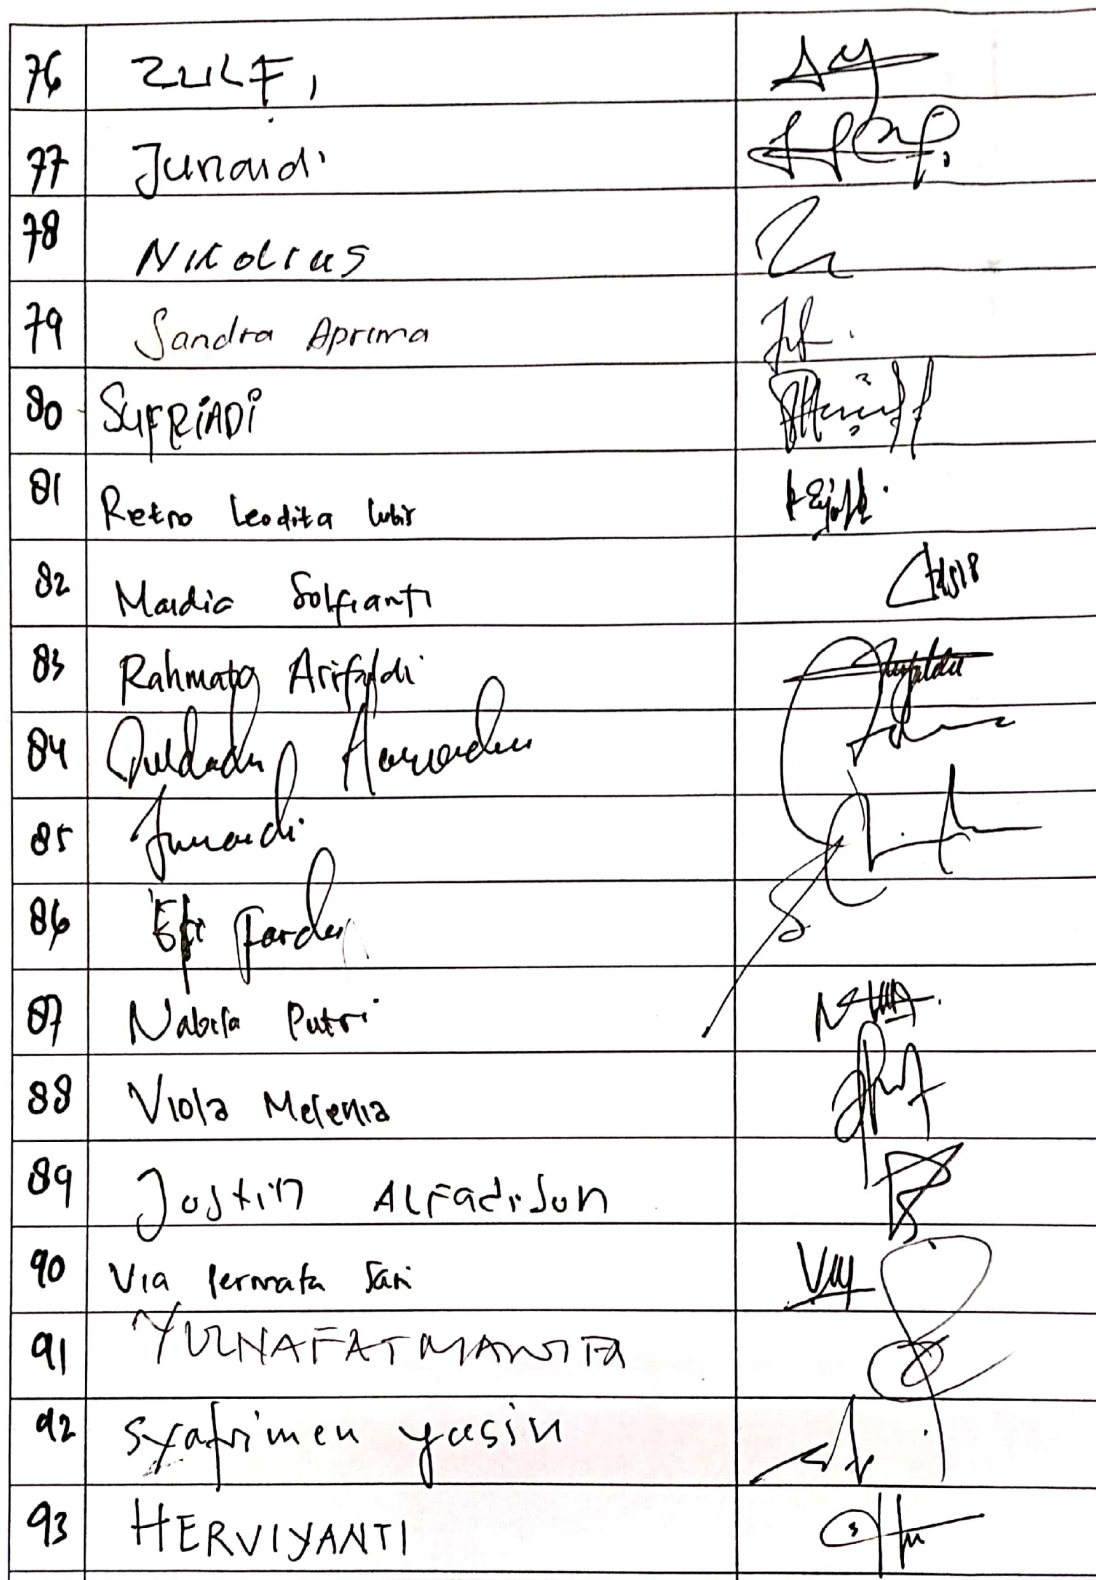 76 ZULF,
77 Junaidi
78 Nikolius
79 Sandra Aprima
80 SUFRIADI
81 Retno Leodita Lubis
82 Mardia Solfianti
83 Rahmata Arifaldi
84
85 Junaidi
86 Efi
87 Nabila Putri
88 Viola Melenia
89 Jostin ALFadison
90 Via Permata Sari
91 YULNAFATMAWITA
92 Syafrimen yasin
93 HERVIYANTI